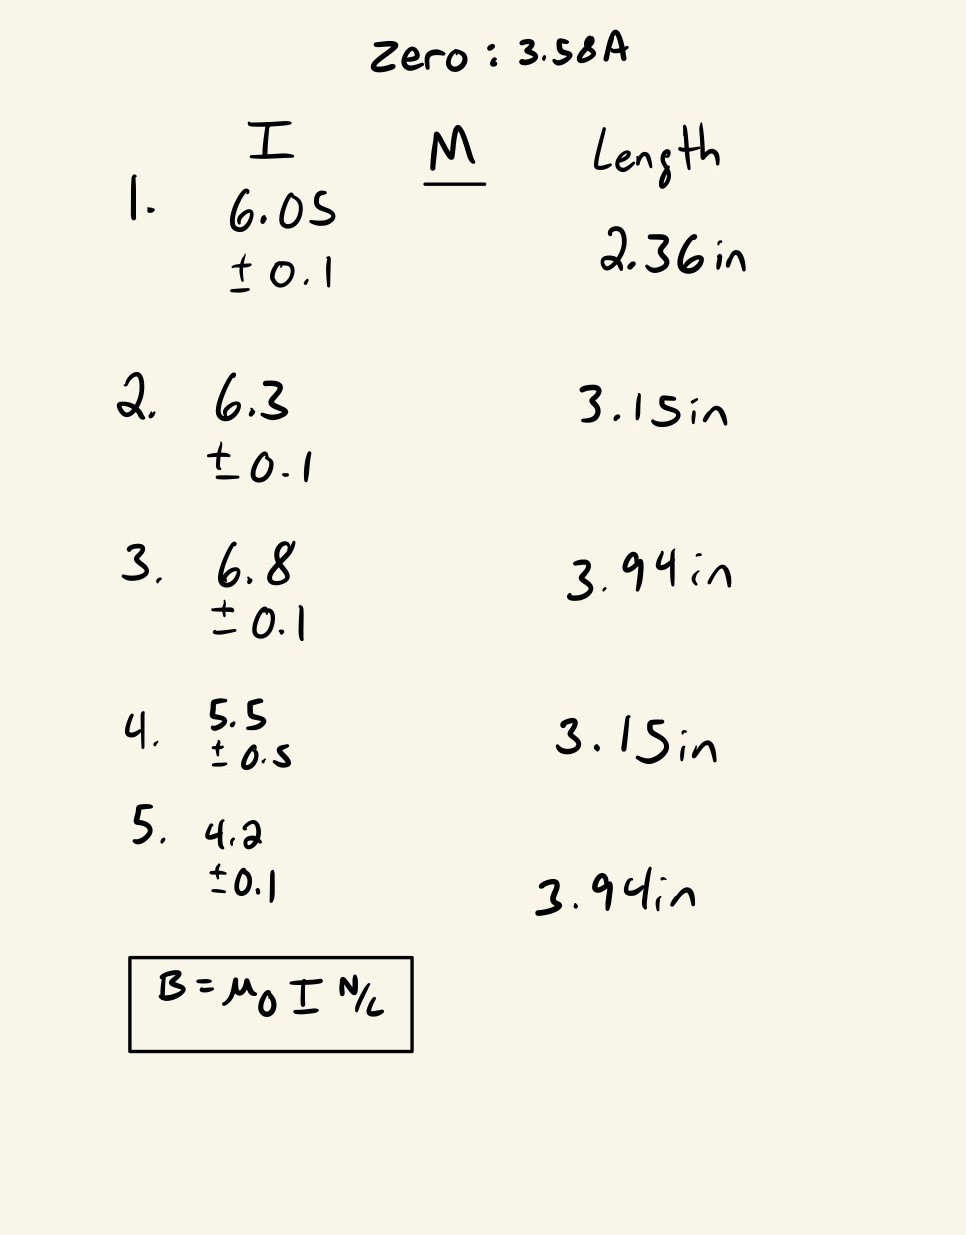 Zero : 3.58A
I M Length
1. 6.05
± 0.1 2.36in
2. 6.3 3.15in
± 0.1
3. 6.8 3.94in
± 0.1
4. 5.5 3.15in
± 0.5
5. 4.2
± 0.1 3.94in
B = μ₀ I N/L